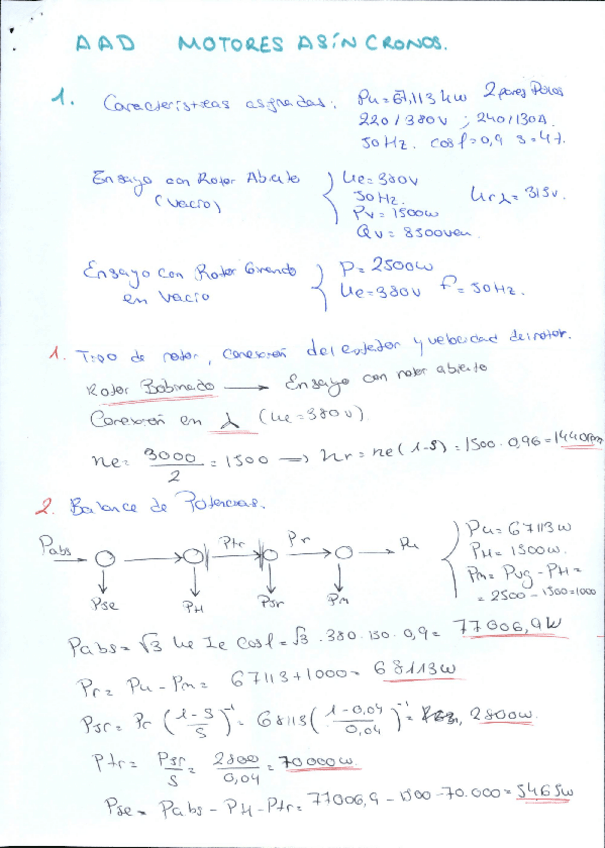 AAD MOTORES ASÍNCRONOS.
1. Características asignadas: Pu = 67,113 kW 2 pares Polos
220/380V ; 240/130A.
50Hz. cosφ=0,9 S=4%.
Ensayo con Rotor Abierto
(vacío)
Ue=380V
50Hz.
Pv=1500w
Qv=8500VAr.
Urλ=315v.
Ensayo con Rotor Girando
en vacío
P=2500w
Ue=380v f=50Hz.
1. Tipo de rotor, conexión del estator y velocidad del rotor.
Rotor Bobinado → Ensayo con rotor abierto
Conexión en λ (Ue=380v)
ne= 3000/2 = 1500 → nr= ne(1-S) = 1500·0,96=1440rpm
2. Balance de Potencias.
Pabs Ptr Pr Pu
Pse PH Psr Pm
Pu=67113w
PH=1500w.
Pm= Pvg - PH =
= 2500-1500=1000
Pabs= √3 Ue Ie cosφ = √3 · 380·130·0,9= 77006,9W
Pr= Pu - Pm= 67113+1000= 68113w
Psr= Pr (1-S/S)⁻¹= 68113(1-0,04/0,04)⁻¹= 2800w.
Ptr= Psr/S= 2800/0,04= 70000w.
Pse= Pabs - PH - Ptr= 77006,9 - 1500 - 70.000= 5465w